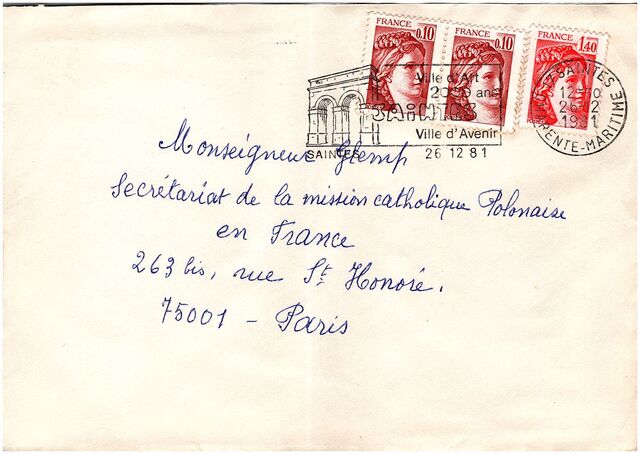 FRANCE 0.10
FRANCE 0.10
FRANCE 1.40
Ville d'Art
2000 ans
SAINTES
Ville d'Avenir
SAINTES 26 12 81
SAINTES
12
26-12
1981
CHARENTE-MARITIME
Monseigneur Glemp
Secrétariat de la mission catholique Polonaise
en France
263 bis, rue St Honoré.
75001 - Paris